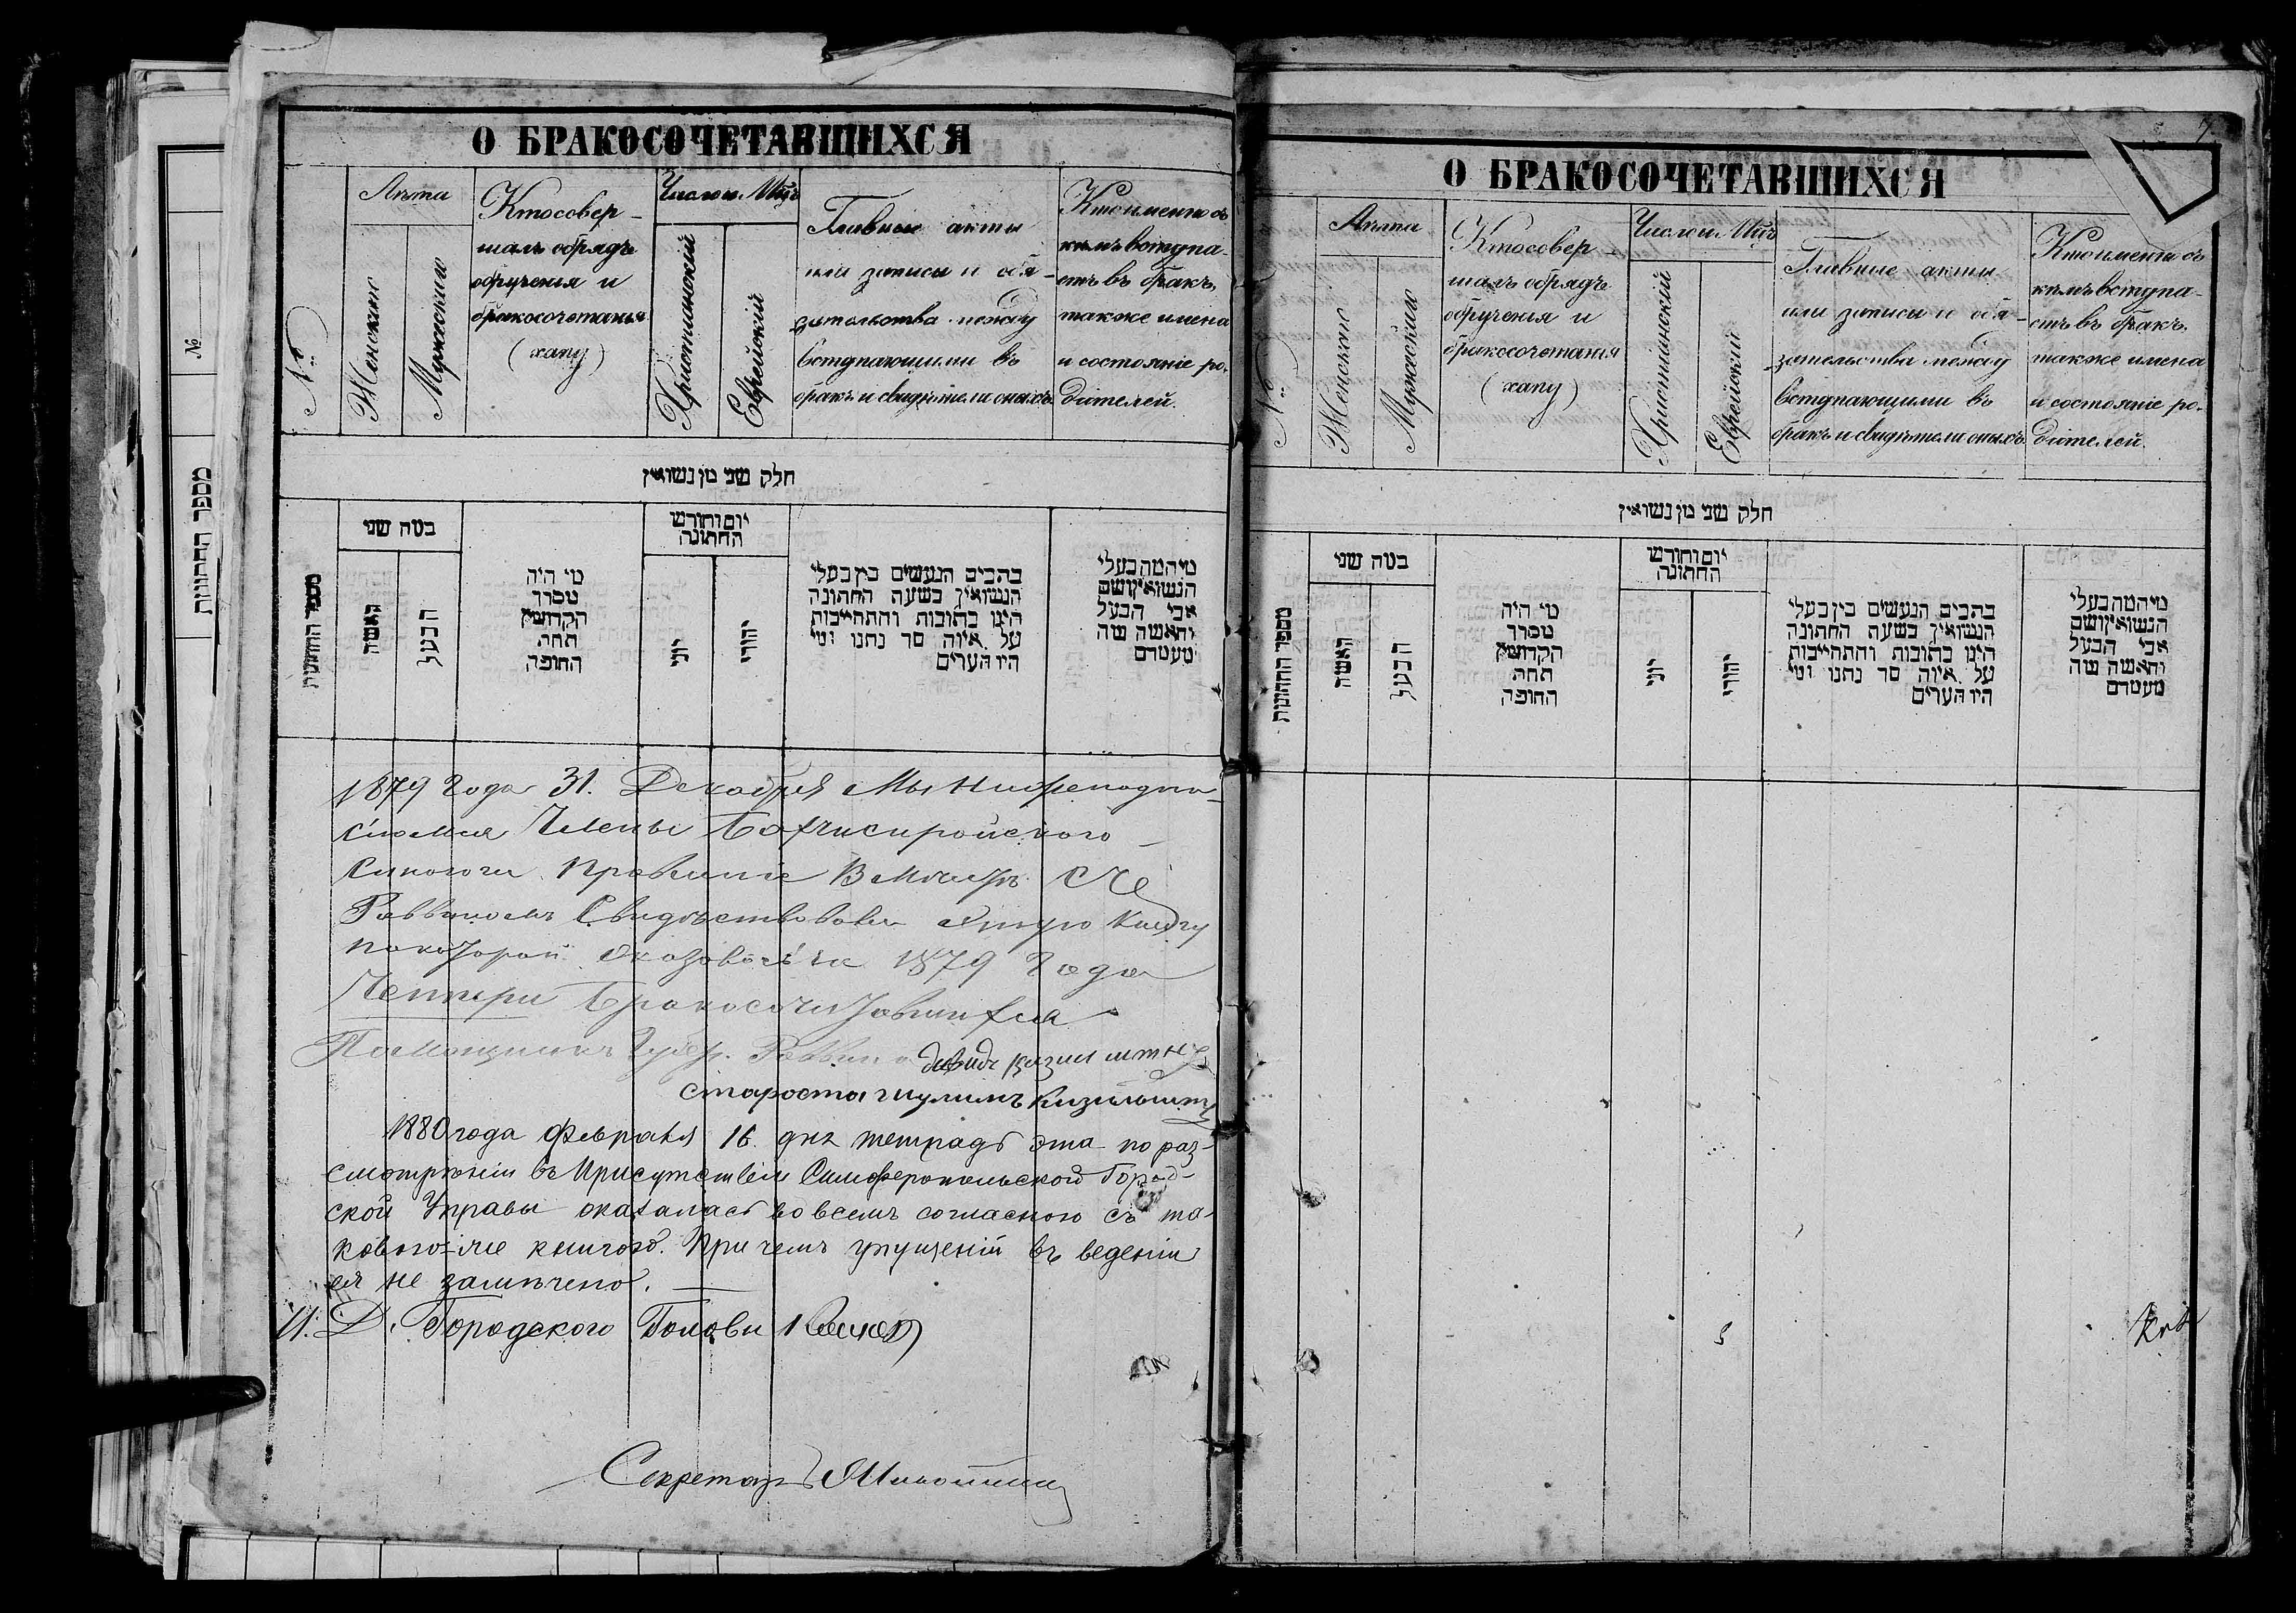 №
מספר החתונות
О БРАКОСОЧЕТАВШИХСЯ
№
Лѣта
Женскаго
Мужескаго
Кто совер-
шалъ обрядъ
обрученія и
бракосочетанія
(хапу)
Число и Мцъ
Христіанскій
Еврейскій
Главные акты
или записи и обя-
зательства между
вступающими въ
бракъ и свидѣтели оныхъ
Кто именно съ
кѣмъ вступа-
етъ въ бракъ,
также имена
и состояніе ро-
дителей.
חלק שני מן נשואין
מספר החתונות
במה שני
האשה
הבעל
מי היה
מסדר
הקדושין
תחת
החופה
יום וחודש
החתונה
יוני
יהודי
בתבים הנעשים בין בעלי
הנשואין בשעת החתונה
היינו כתובות והתחייבות
על איזה סך נתנו ומי
היו הערים
מי המה בעלי
הנשואין ושם
אבי הבעל
והאשה מה
מעמדם
1879 года 31. Декабря Мы Нижеподпи-
сіюмся Члены Бахчисиройского
Синогоги Провленіе Вместѣ С
Раввиномъ Свидѣствовали Книгу
покоторой Оказовось 1879 Года
Четири Бракосочитовшихся
Помощникъ Губер. Раввина Давидъ
Староста
1880 года Февраля 16 дня тетрадь эта по раз-
смотрѣніи въ Присутствіи Симферопольской Город-
ской Управы оказалась во всемъ согласною съ та-
ковою-же книгою. При чемъ упущеній въ веденіи
ея не замѣчено.
И. Д. Городскаго Головы
Секретарь
О БРАКОСОЧЕТАВШИХСЯ
№
Лѣта
Женскаго
Мужескаго
Кто совер-
шалъ обрядъ
обрученія и
бракосочетанія
(хапу)
Число и Мцъ
Христіанскій
Еврейскій
Главные акты
или записи и обя-
зательства между
вступающими въ
бракъ и свидѣтели оныхъ
Кто именно съ
кѣмъ вступа-
етъ въ бракъ,
также имена
и состояніе ро-
дителей.
חלק שני מן נשואין
מספר החתונות
במה שני
האשה
הבעל
מי היה
מסדר
הקדושין
תחת
החופה
יום וחודש
החתונה
יוני
יהודי
בתבים הנעשים בין בעלי
הנשואין בשעת החתונה
היינו כתובות והתחייבות
על איזה סך נתנו ומי
היו הערים
מי המה בעלי
הנשואין ושם
אבי הבעל
והאשה מה
מעמדם